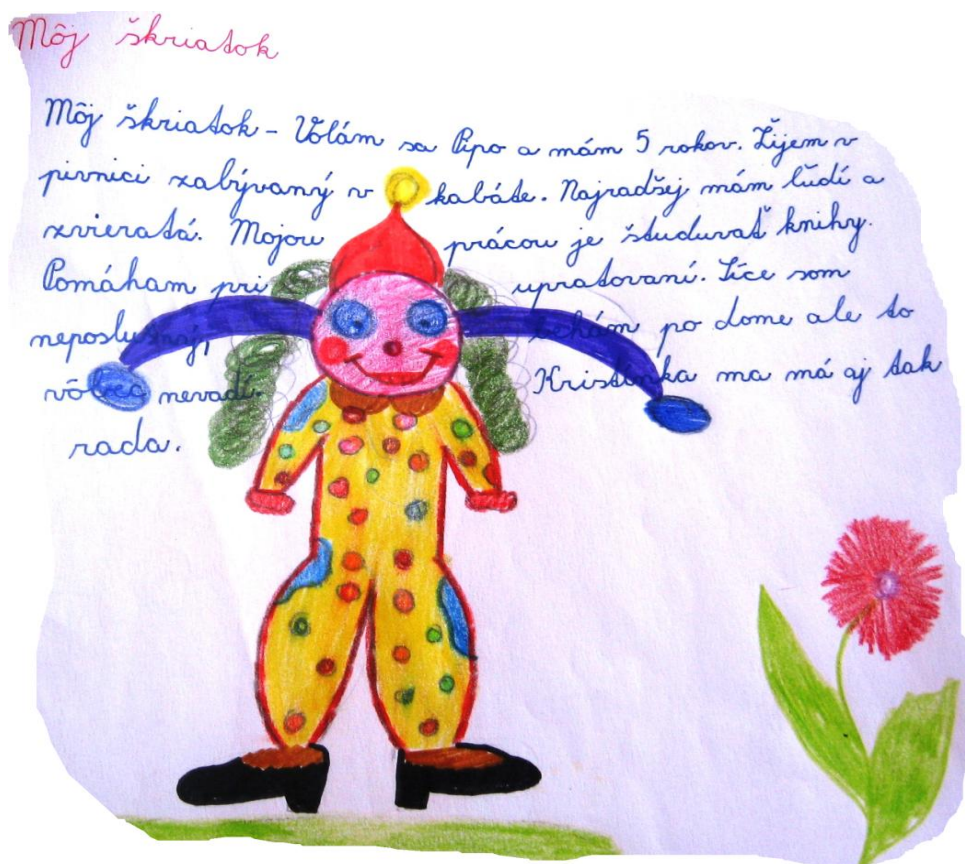 Môj škriatok
Môj škriatok - Volám sa Pipo a mám 5 rokov. Žijem v
pivnici zabývaný v kabáte. Najradšej mám ľudí a
zvieratá. Mojou prácou je študuvať knihy.
Pomáham pri upratovaní. Síce som
neposlušný, po dome ale to
vôbec nevadí. Kristínka ma má aj tak
rada.